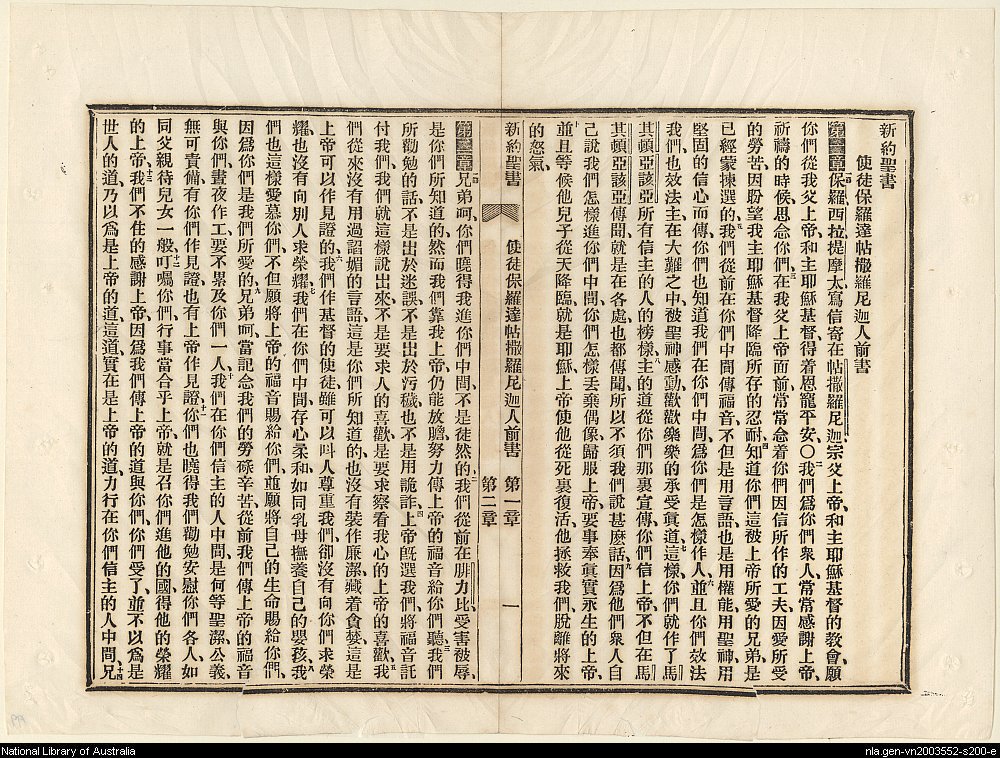 新約聖書
使徒保羅達帖撒羅尼迦人前書
第一章保羅西拉提摩太寫信寄在帖撒羅尼迦宗父上帝、和主耶穌基督的教會、願
你們從我父上帝、和主耶穌基督、得着恩寵平安、〇二我們爲你們衆人常常感謝上帝、
祈禱的時候、思念你們、三在我父上帝面前、常常念着你們因信所作的工夫、因愛所受
的勞苦、因盼望我主耶穌基督降臨所存的忍耐、四知道你們這被上帝所愛的兄弟、是
已經蒙揀選的、五我們從前在你們中間傳福音、不但是用言語、也是用權能、用聖神、用
堅固的信心而傳、你們也知道我們在你們中間、爲你們是怎樣作人、六並且你們效法
我們、也效法主、在大難之中、被聖神感動、歡歡樂樂的承受眞道、七這樣、你們就作了馬
其頓亞該亞所有信主的人的榜樣、八主的道從你們那裏宣傳、你們信上帝、不但在馬
其頓亞該亞傳聞、就是在各處也都傳聞、所以不須我們說甚麽話、九因爲他們衆人自
己說我們怎樣進你們中間、你們怎樣丢棄偶像、歸服上帝、要事奉眞實永生的上帝、
十並且等候他兒子從天降臨、就是耶穌、上帝使他從死裏復活、他拯救我們、脫離將來
的怒氣、
新約聖書 使徒保羅達帖撒羅尼迦人前書 第一章 第二章 一
第二章一兄弟呵、你們曉得我進你們中間、不是徒然的、二我們從前在腓力比受害被辱、
是你們所知道的、然而我們靠我上帝、仍能放膽努力傳上帝的福音給你們聽、三我們
所勸勉的話、不是出於迷誤、不是出於污穢、也不是用詭詐、四上帝旣選我們、將福音託
付我們、我們就這樣說出來、不是要求人的喜歡、是要求察看我心的上帝的喜歡、五我
們從來沒有用過諂媚的言語、這是你們所知道的、也沒有裝作廉潔、藏着貪婪、這是
上帝可以作見證的、六我們作基督的使徒、雖可以叫人尊重我們、卻沒有向你們求榮
耀、也沒有向別人求榮耀、七我們在你們中間、存心柔和、如同乳母撫養自己的嬰孩、八我
們也這樣愛慕你們、不但願將上帝的福音賜給你們、並願將自己的生命賜給你們、
因爲你們是我們所愛的、九兄弟呵、當記念我們的勞碌辛苦、從前我們傳上帝的福音
與你們、晝夜作工、要不累及你們一人、十我們在你們信主的人中間、是何等聖潔、公義、
無可責備、有你們作見證、也有上帝作見證、十一你們也曉得我們勸勉安慰你們各人、如
同父親待兒女一般、十二叮囑你們行事當合乎上帝、就是召你們進他的國、得他的榮耀
的上帝、十三我們不住的感謝上帝、因爲我們傳上帝的道與你們、你們受了、並不以爲是
世人的道、乃以爲是上帝的道、這道實在是上帝的道、力行在你們信主的人中間、十四兄
National Library of Australia
nla.gen-vn2003552-s200-e